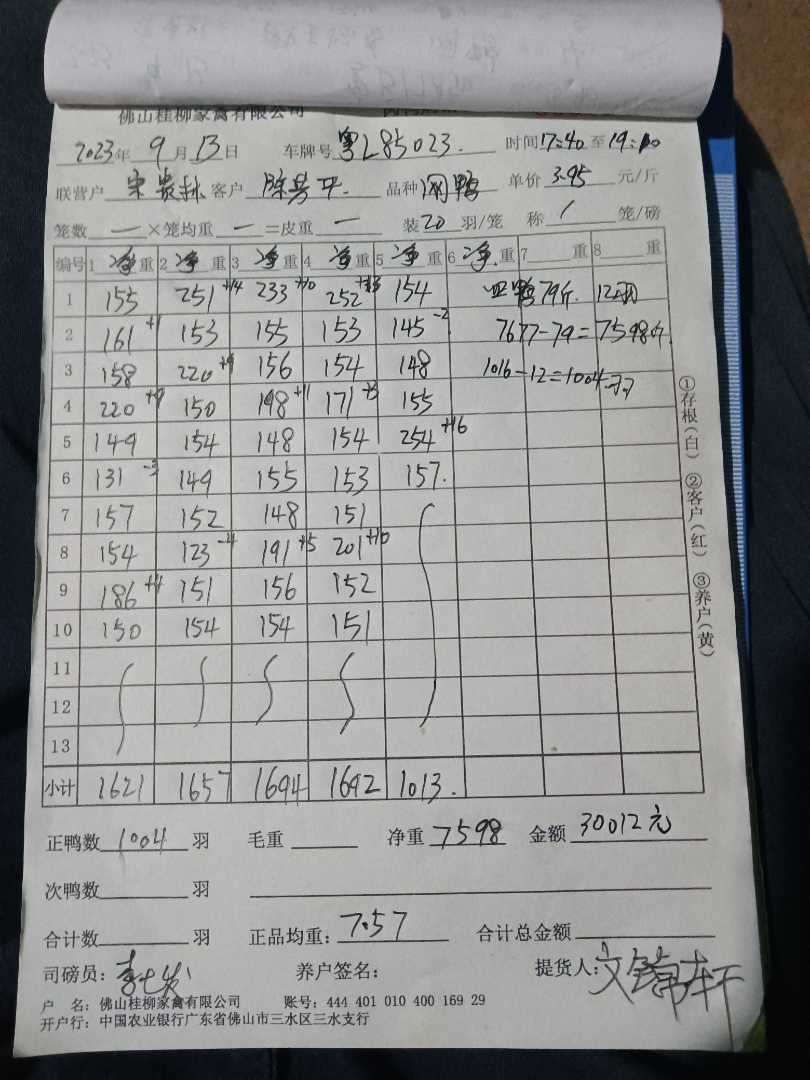 佛山桂柳家禽有限公司
2023年 9月13日 车牌号 粤L85023. 时间17:40 至19:00
联营户 客户 品种 单价 3.95 元/斤
笼数 — ×笼均重 — =皮重 — 装20 羽/笼 称 1 笼/磅
编号 1 净重 2 净重 3 净重 4 净重 5 净重 6 净重 7 重 8 重
1 155 251+14 233+10 252+13 154 79斤. 12羽
2 161+1 153 155 153 145-2 7677-79=7598斤
3 158 220+9 156 154 148 1016-12=1004羽
4 220+9 150 198+11 171 155
5 149 154 148 154 254+16
6 131-3 149 155 153 157.
7 157 152 148 151
8 154 123-4 191+5 201+10
9 186+4 151 156 152
10 150 154 154 151
11
12
13
小计 1621 1657 1694 1692 1013.
①存根(白) ②客户(红) ③养户(黄)
正鸭数 1004 羽 毛重 净重 7598 金额 30012元
次鸭数 羽
合计数 羽 正品均重: 7.57 合计总金额
司磅员: 养户签名: 提货人:
户 名: 佛山桂柳家禽有限公司 账号: 444 401 010 400 169 29
开户行: 中国农业银行广东省佛山市三水区三水支行